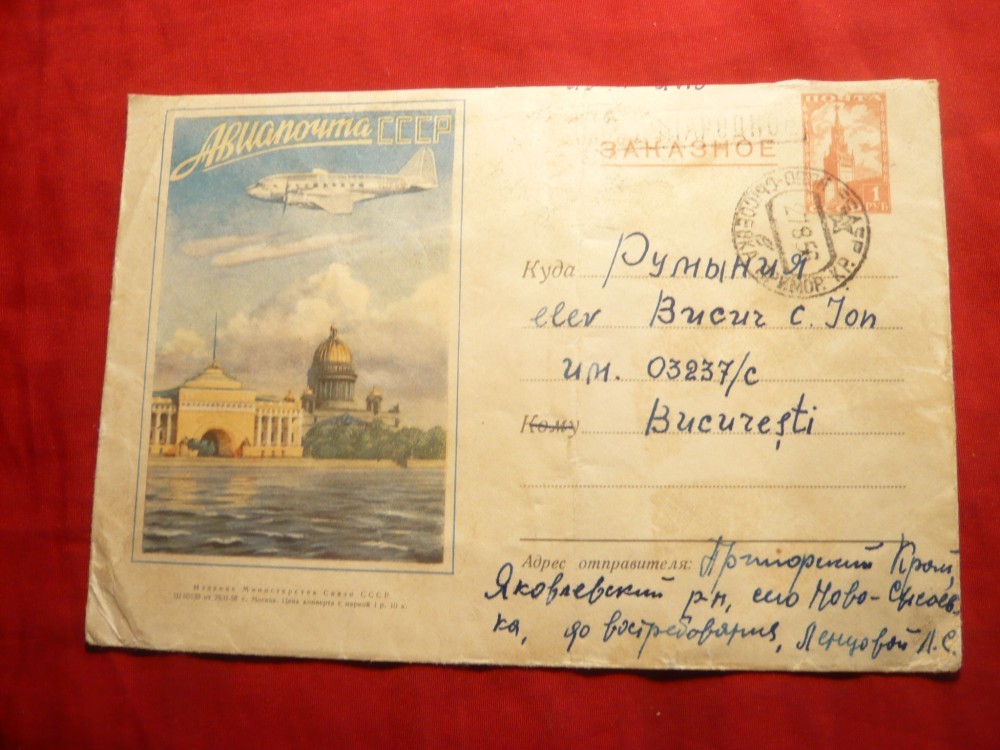 Авиапочта СССР
ПОЧТА
ЗАКАЗНОЕ
1
РУБ
27 8 56
Куда Румыния
elev Висич с. Ion
им. 03237/с
Кому București
Адрес отправителя: Приморский Край,
Яковлевский р-н, село Ново-Сысоев-
ка, до востребования, Ленцовой Л.С.
Издание Министерства Связи СССР
г. Москва. Цена конверта с маркой 1 р.